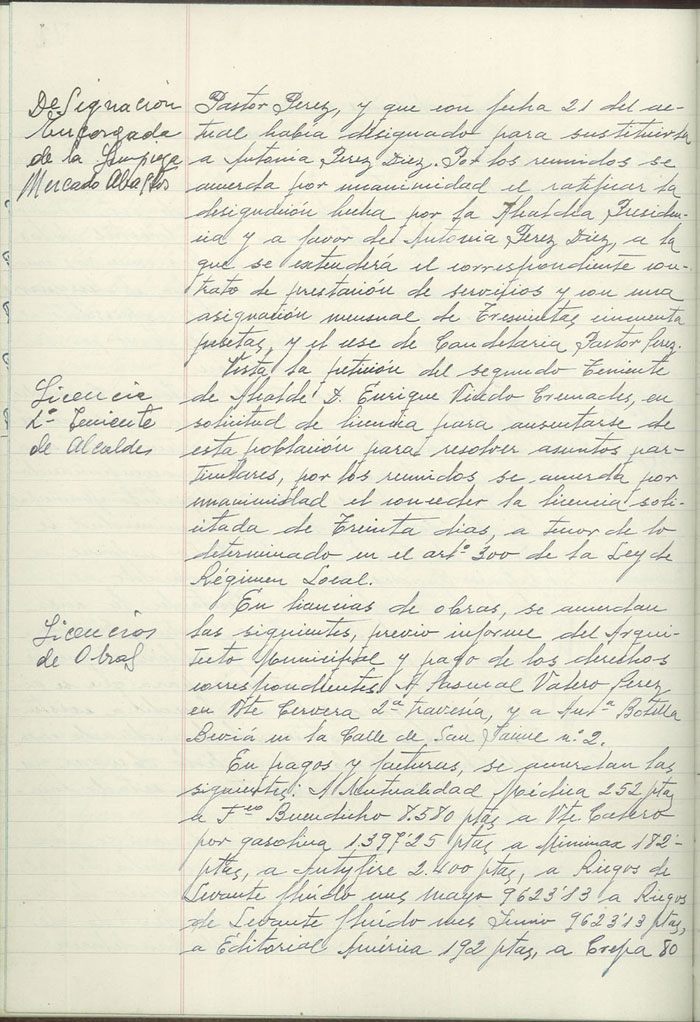 Designación
Encargada
de la Limpieza
Mercado Abastos
Pastor Perez, y que con fecha 21 del ac-
tual habia designado para sustituirla
a Antonia Perez Diez. Por los reunidos se
acuerda por unanimidad el ratificar la
designación hecha por la Alcaldia Presiden-
cia y a favor de Antonia Perez Diez, a la
que se extenderá el correspondiente con-
trato de prestación de servicios y con una
asignación mensual de Trescientas cincuenta
pesetas, y el cese de Candelaria Pastor Perez.
Licencia
2º Teniente
de Alcalde
Vista la petición del segundo Teniente
de Alcalde D. Enrique Viñedo Cremades, en
solicitud de licencia para ausentarse de
esta población para resolver asuntos par-
ticulares, por los reunidos se acuerda por
unanimidad el conceder la licencia soli-
citada de Treinta dias, a tenor de lo
determinado en el artº 300 de la Ley de
Régimen Local.
Licencias
de Obras
En licencias de obras, se acuerdan
las siguientes, previo informe del Arqui-
tecto Municipal y pago de los derechos
correspondientes. A Pascual Valero Perez
en Vte Cervera 2ª travesía, y a Antª Botella
en la Calle de San Jaime nº 2.
En pagos y facturas, se acuerdan las
siguientes: A Mutualidad Médica 252 ptas
a Fco Buendicho 8.580 ptas a Vte
por gasolina 1.397'25 ptas, a Minimax 182-
ptas, a Antyfire 2.400 ptas, a Riegos de
Levante flúido mes Mayo 9623'13 a Riegos
de Levante flúido mes Junio 9623'13 ptas,
a Editorial América 192 ptas, a Crepa 80